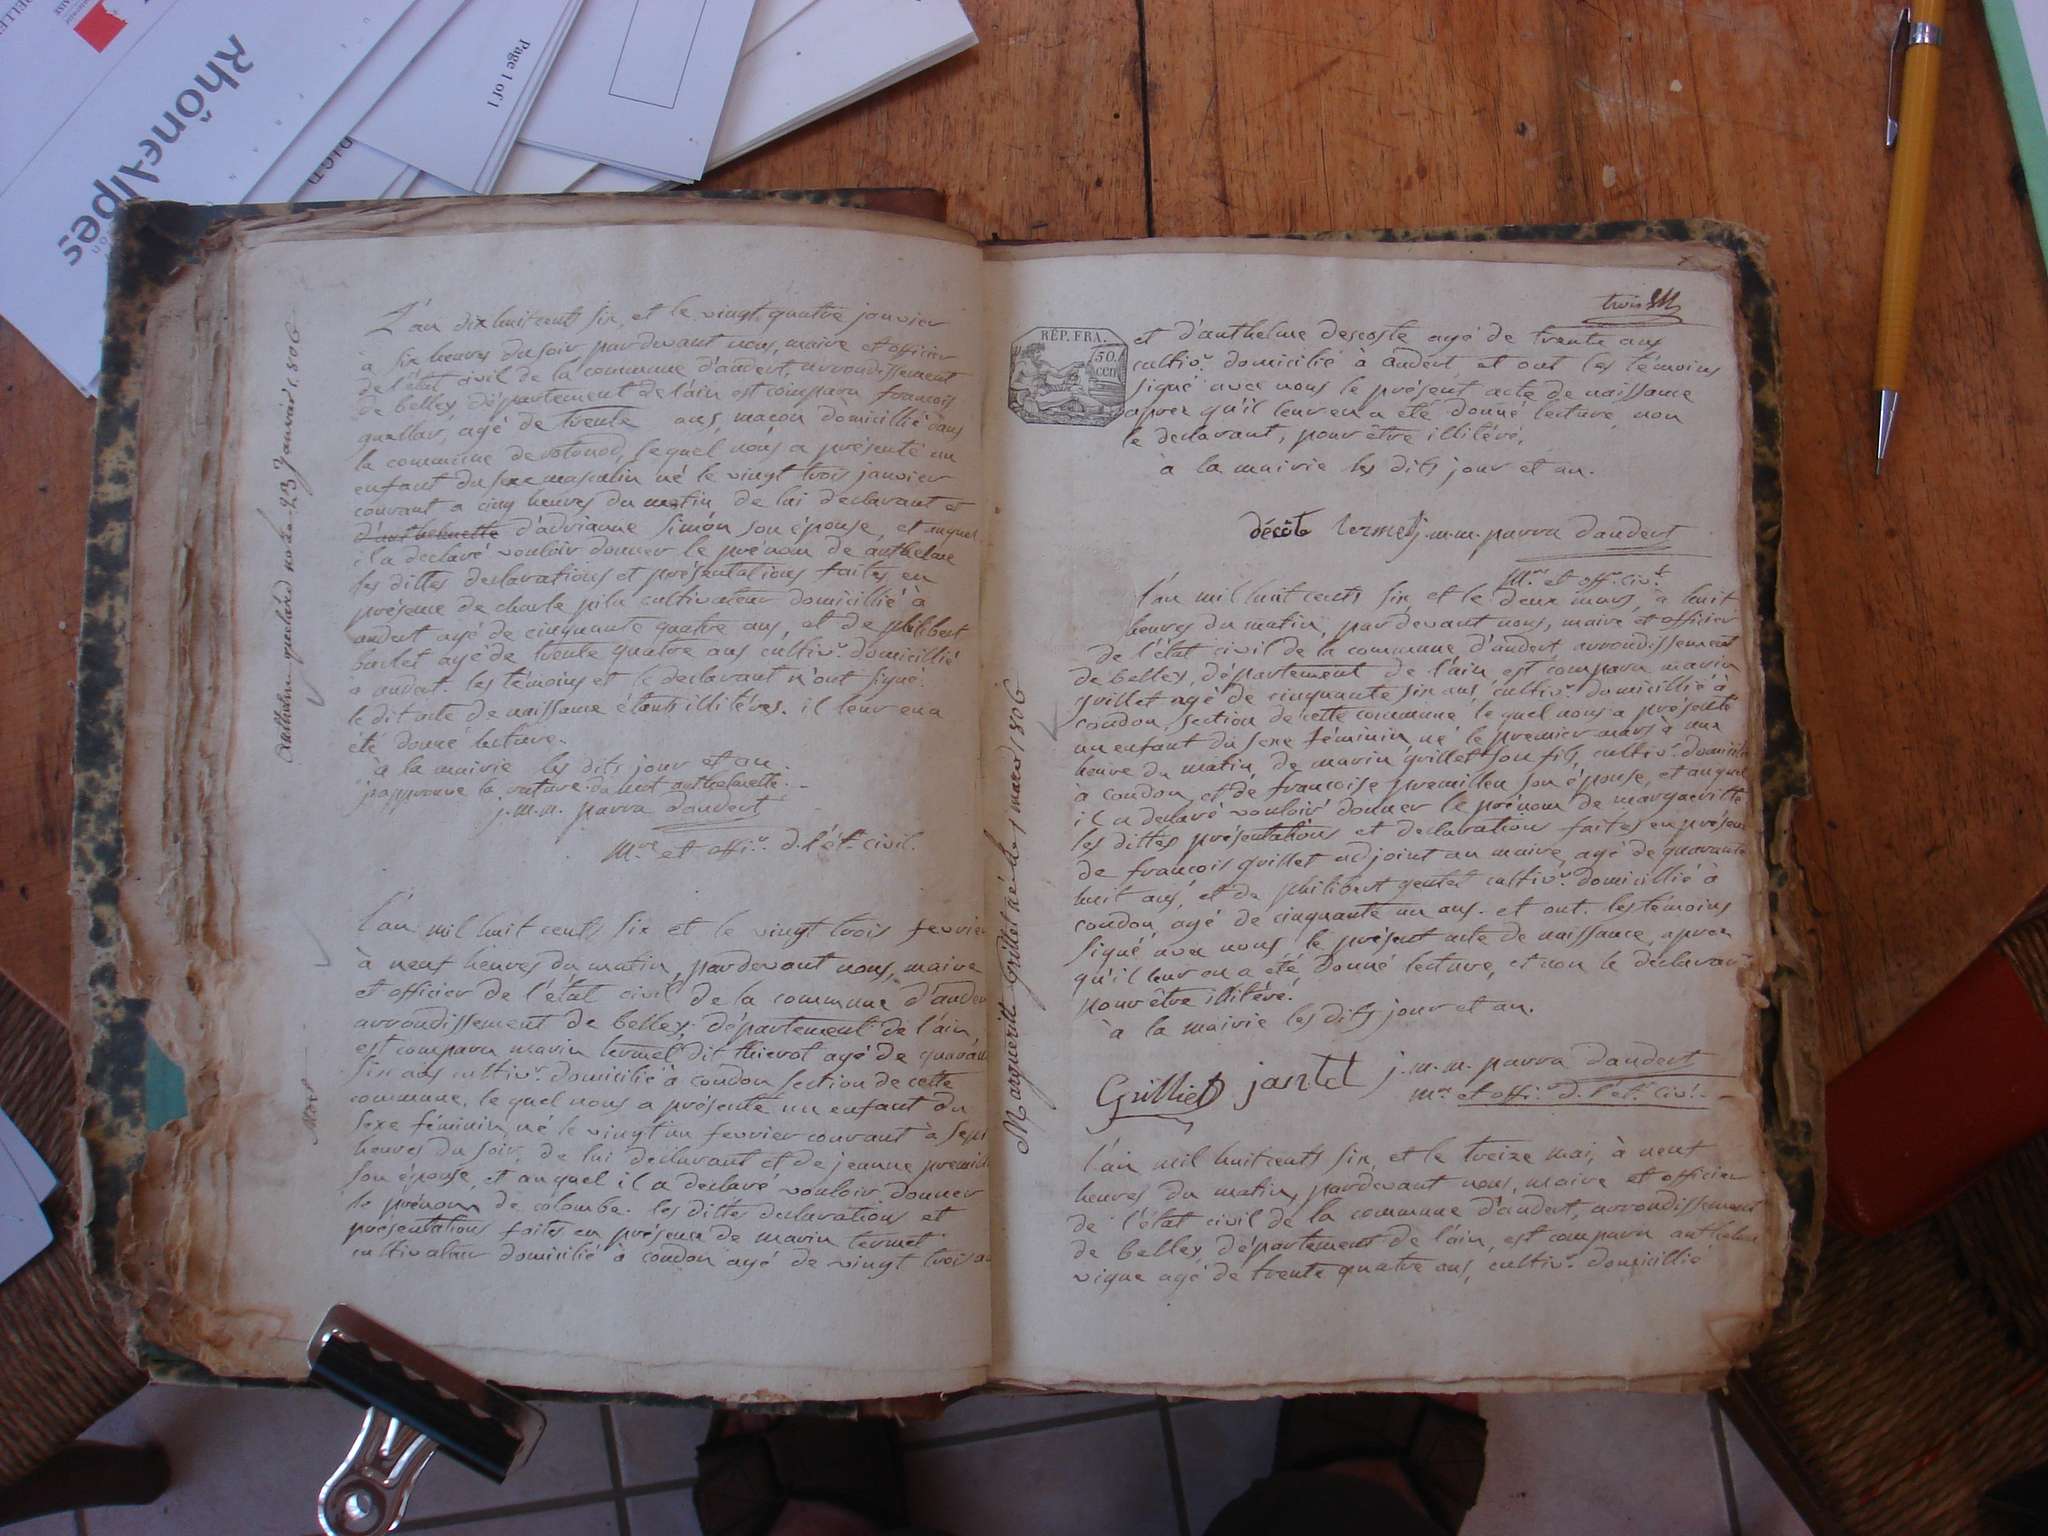 Rhône-Alpes
Page 1 of 1
anthelme guelard né le 23 Janvier 1806
L'an dix huit cents six, et le vingt quatre janvier
à six heures du soir, pardevant nous, maire et officier
de l'état civil de la commune d'andert, arrondissement
de belley, département de l'ain est comparu francois
agé de trente ans, macon domicillié dans
la commune de lequel nous a présenté un
enfant du sexe masculin né le vingt trois janvier
courant a cinq heures du matin de lui declarant et
d'anthelmette d'adrianne simon son épouse, et auquel
il a declaré vouloir donner le prénom de anthelme
les dittes declarations et présentations faites en
présence de charle cultivateur domicillié à
andert agé de cinquante quatre ans, et de philibert
barlet agé de trente quatre ans cultivr. domicillié
à andert. les témoins et le declarant n'ont signé
le dit acte de naissance étants illitérés. il leur en a
été donné lecture.
à la mairie les dits jour et an.
j'approuve la rature du mot anthelmette.
j. m. m. parra dandert
mre et offir. d. l'ét. civil.
l'an mil huit cents six et le vingt trois fevrier
à neuf heures du matin, pardevant nous, maire
et officier de l'état civil de la commune d'ander
arrondissement de belley, département de l'ain,
est comparu marin termet dit thierot agé de quaran
six ans cultivr. domicilié à coudon section de cette
commune, le quel nous a présenté un enfant du
sexe féminin né le vingt un fevrier courant à sept
heures du soir, de lui declarant et de jeanne premill
son épouse, et auquel il a declaré vouloir donner
le prénom de colombe. les dittes declarations et
présentations faites en présence de marin termet
cultivateur domicilié à coudon agé de vingt trois an
trois
RÉP. FRA.
50.
cen
et d'anthelme descoste agé de trente ans
cultivr. domicilié à andert, et ont les témoins
signé avec nous le présent acte de naissance
apres qu'il leur en a été donné lecture, non
le declarant, pour être illitéré.
à la mairie les dits jour et an.
décôte termet j. m. m. parra dandert
mre et offr. civl.
Marguerite Grillet né le 1 mars 1806
l'an mil huit cents six et le deux mars, à huit
heures du matin, pardevant nous, maire et officier
de l'état civil de la commune d'andert arrondissement
de belley, département de l'ain est comparu marin
grillet agé de cinquante six ans, cultivr. domicillié à
coudon section de cette commune, le quel nous a présenté
un enfant du sexe féminin né le premier mars à une
heure du matin, de marin grillet son fils, cultivr. domicilié
à coudon, et de francoise premillieu son épouse, et auquel
il a declaré vouloir donner le prénom de margueritte
les dittes présentations et declaration faites en présen
de francois grillet adjoint au maire, agé de quarante
huit ans, et de philibert gentet cultivr. domicillié à
coudon agé de cinquante un ans. et ont les témoins
signé avec nous le présent acte de naissance, apres
qu'il leur en a été donné lecture, et non le declarant
pour être illitéré.
à la mairie les dits jour et an.
Grilliet jantet j. m. m. parra dandert
mre et offir. d. l'ét. civl.
l'an mil huit cents six et le treize mai, à neuf
heures du matin, pardevant nous, maire et officier
de l'état civil de la commune d'andert, arrondissement
de belley, département de l'ain, est comparu anthelme
vigne agé de trente quatre ans, cultivr. domicillié